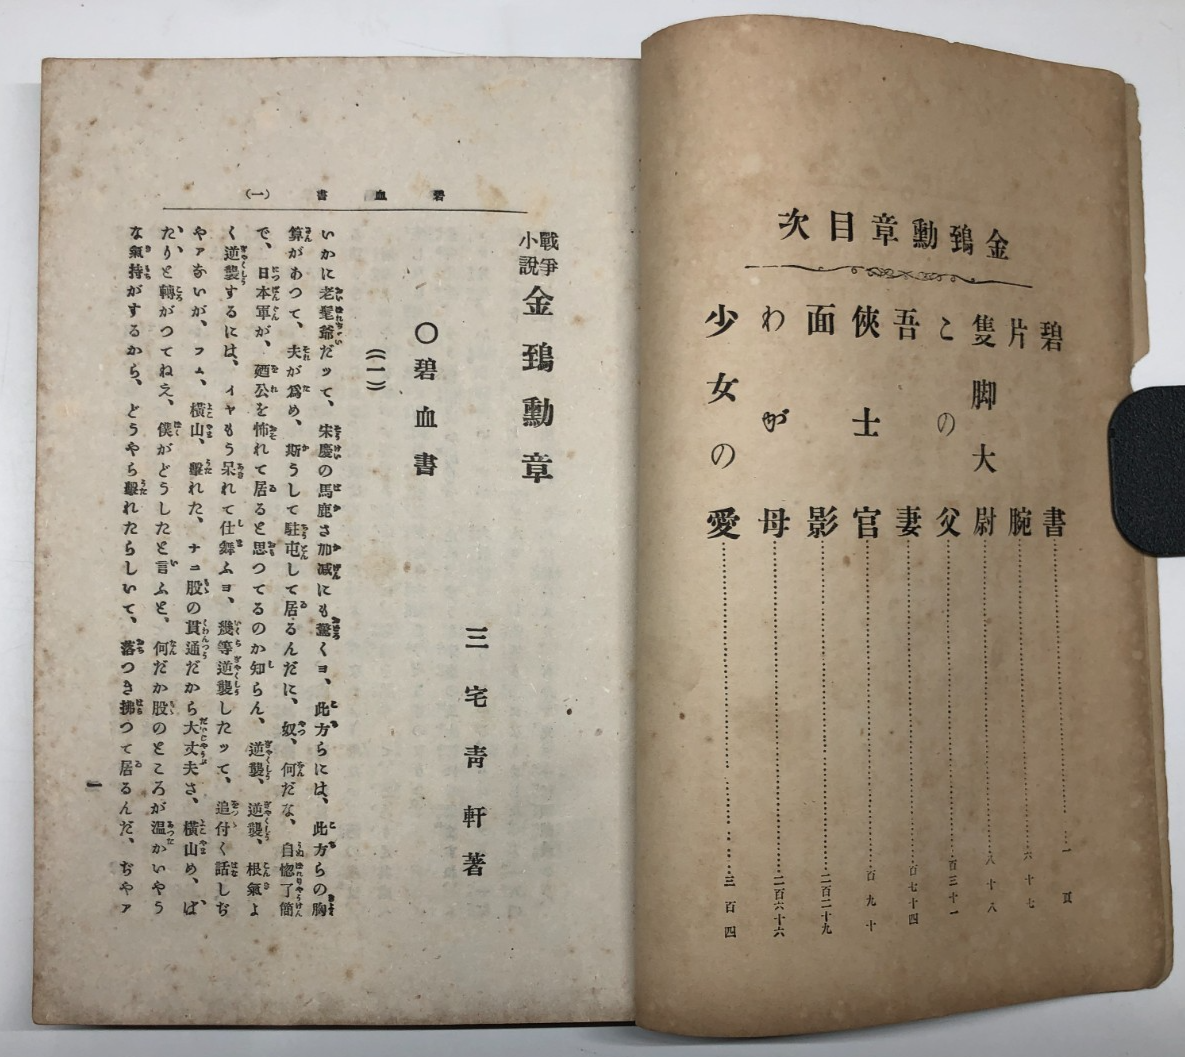 金鵄勳章目次
碧血書……一頁
片腕……六十七
隻脚大尉……八十八
この父……百三十一
吾妻……百七十四
俠士官……百九十
面影……二百二十九
わが母……二百六十六
少女の愛……三百四
碧血書（一）
戰爭小説 金鵄勳章
三宅靑軒著
〇碧血書
（一）
いかに老耄爺だッて、宋慶の馬鹿さ加減にも驚くョ、此方らには、此方らの胸
算があつて、夫が爲め、斯うして駐屯して居るんだに、奴、何だな、自惚了簡
で、日本軍が、廼公を怖れて居ると思つてるのか知らん、逆襲、逆襲、根氣よ
く逆襲するには、ィヤもう呆れて仕舞ふョ、幾等逆襲したッて、追付く話しぢ
やァないが、フム、橫山、擊れた、ナニ股の貫通だから大丈夫さ、橫山め、ば
たりと轉がつてねえ、僕がどうしたと言ふと、何だか股のところが温かいやう
な氣持がするから、どうやら擊れたらしいて、落つき拂つて居るんだ、ぢやァ
一